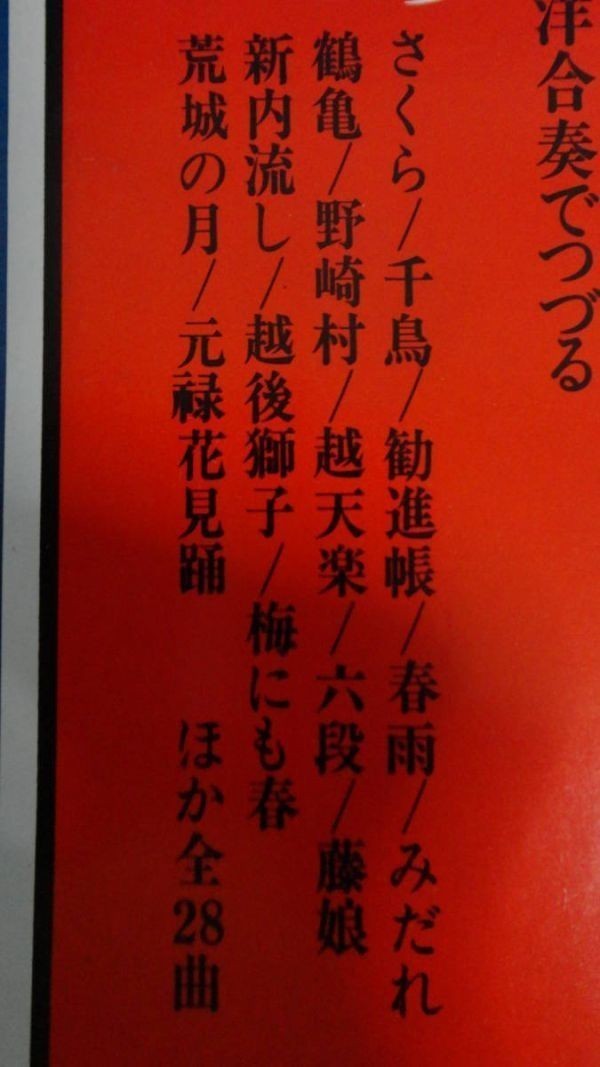 洋合奏でつづる
さくら/千鳥/勧進帳/春雨/みだれ
鶴亀/野崎村/越天楽/六段/藤娘
新内流し/越後獅子/梅にも春
荒城の月/元禄花見踊 ほか全28曲